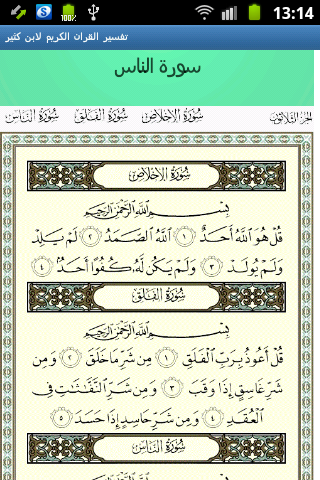 13:14
تفسير القران الكريم لابن كثير
سورة الناس
الجزء الثلاثون سورة الإخلاص سورة الفلق سورة الناس
سُورَةُ الإِخْلَاصِ
بِسْمِ اللَّهِ الرَّحْمَنِ الرَّحِيمِ
قُلْ هُوَ اللَّهُ أَحَدٌ ١ اللَّهُ الصَّمَدُ ٢ لَمْ يَلِدْ
وَلَمْ يُولَدْ ٣ وَلَمْ يَكُن لَّهُ كُفُوًا أَحَدٌ ٤
سُورَةُ الْفَلَقِ
بِسْمِ اللَّهِ الرَّحْمَنِ الرَّحِيمِ
قُلْ أَعُوذُ بِرَبِّ الْفَلَقِ ١ مِن شَرِّ مَا خَلَقَ ٢ وَمِن
شَرِّ غَاسِقٍ إِذَا وَقَبَ ٣ وَمِن شَرِّ النَّفَّاثَاتِ فِي
الْعُقَدِ ٤ وَمِن شَرِّ حَاسِدٍ إِذَا حَسَدَ ٥
سُورَةُ النَّاسِ
بِسْمِ اللَّهِ الرَّحْمَنِ الرَّحِيمِ